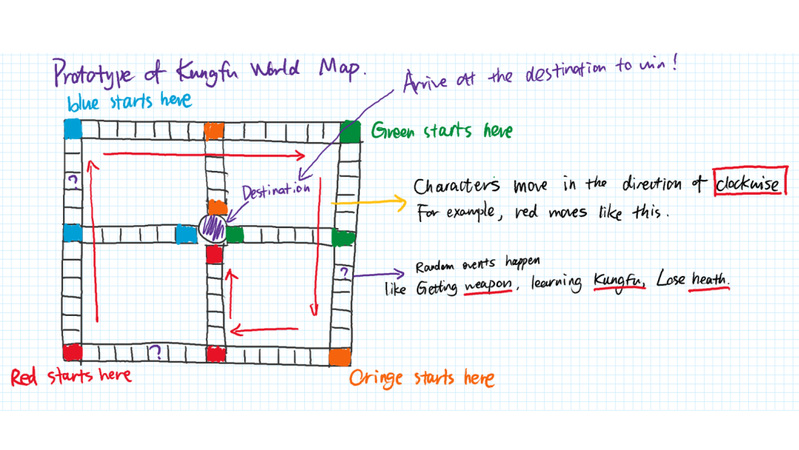 Prototype of Kungfu World Map.
Arrive at the destination to win!
blue starts here
Green starts here
?
Destination
Characters move in the direction of clockwise
For example, red moves like this.
?
Random events happen
like Getting weapon, learning Kungfu, Lose heath.
?
Red starts here
Oringe starts here